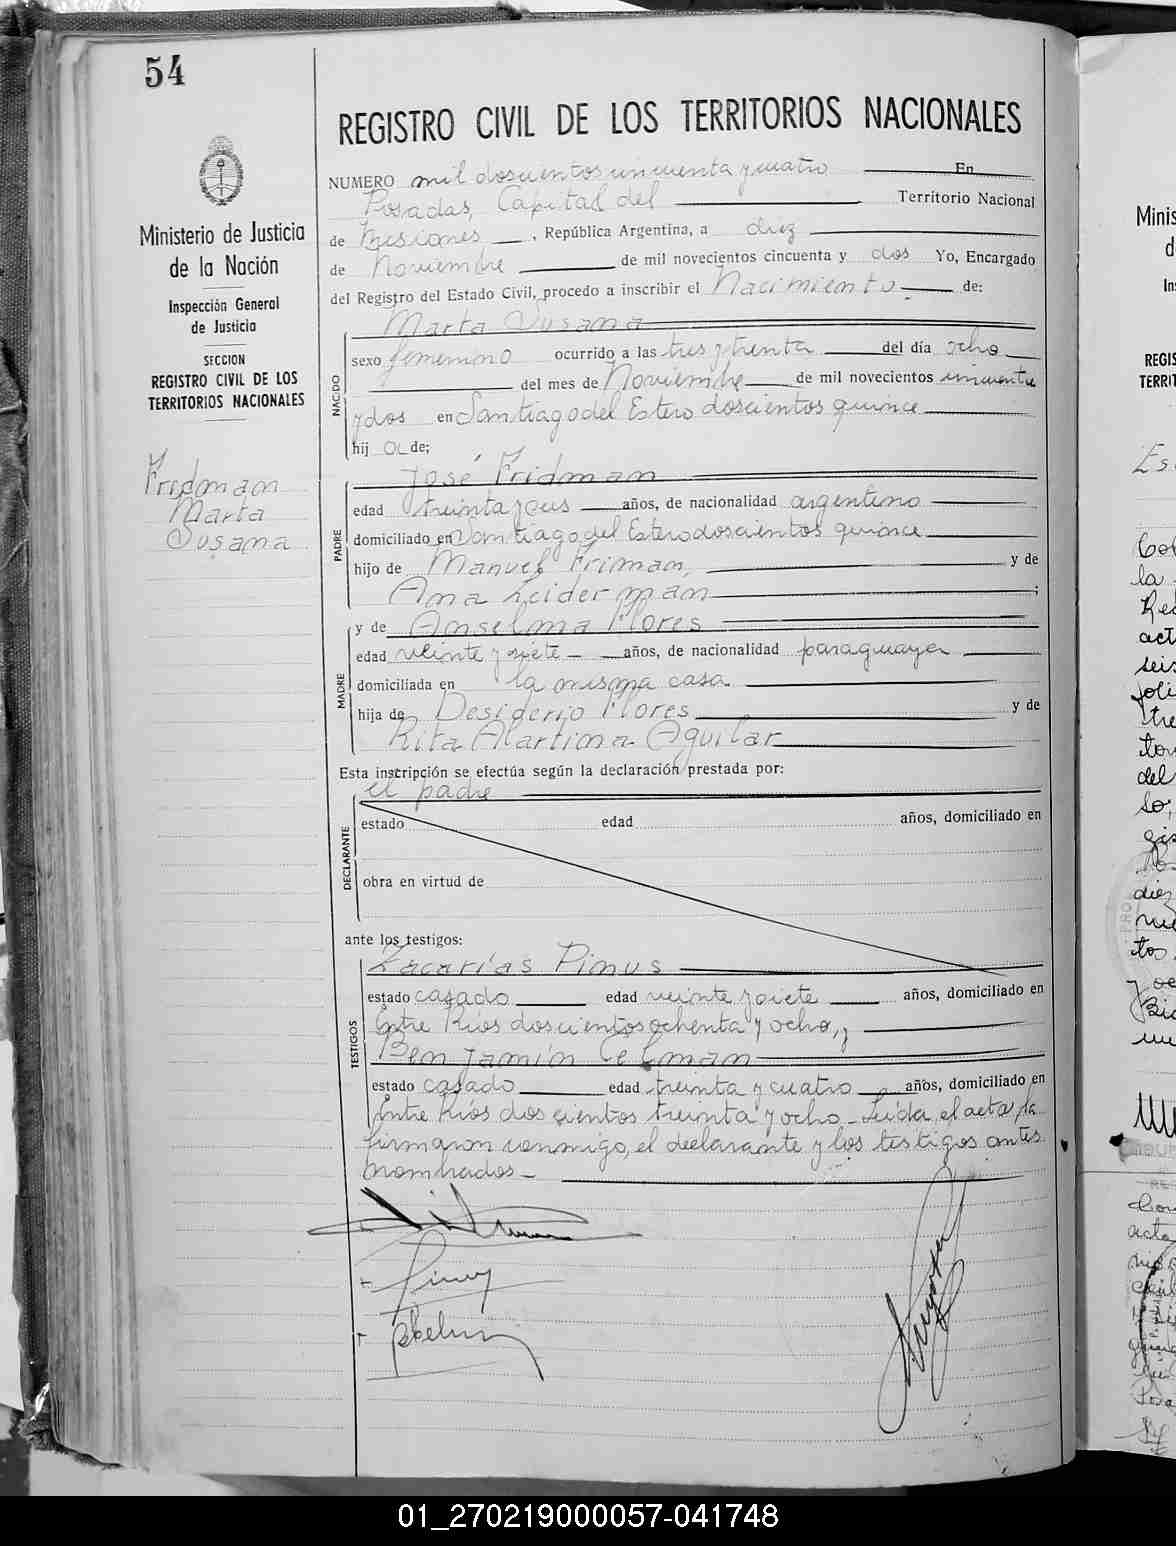 54
REGISTRO CIVIL DE LOS TERRITORIOS NACIONALES
Ministerio de Justicia
de la Nación
Inspección General
de Justicia
SECCION
REGISTRO CIVIL DE LOS
TERRITORIOS NACIONALES
Fridman
Marta
Susana
NUMERO mil doscientos cincuenta y cuatro En
Posadas, Capital del Territorio Nacional
de Misiones, República Argentina, a diez
de Noviembre de mil novecientos cincuenta y dos Yo, Encargado
del Registro del Estado Civil, procedo a inscribir el Nacimiento de:
NACIDO
Marta Susana
sexo femenino ocurrido a las tres y treinta del día ocho
del mes de Noviembre de mil novecientos cincuenta
y dos en Santiago del Estero doscientos quince
hij a de;
PADRE
José Fridman
edad treinta y seis años, de nacionalidad argentino
domiciliado en Santiago del Estero doscientos quince
hijo de Manuel Friman, y de
Ana Zeiderman;
y de Anselma Flores
MADRE
edad veinte y siete años, de nacionalidad paraguaya
domiciliada en la misma casa
hija de Desiderio Flores y de
Rita Martima Aguilar
Esta inscripción se efectúa según la declaración prestada por:
el padre
DECLARANTE
estado edad años, domiciliado en
obra en virtud de
ante los testigos:
TESTIGOS
Zacarías Pinus
estado casado edad veinte y siete años, domiciliado en
Entre Ríos doscientos ochenta y ocho, y
Benjamín Celman
estado casado edad treinta y cuatro años, domiciliado en
Entre Ríos doscientos treinta y ocho - Leída el acta la
firmaron conmigo, el declarante y los testigos antes
nombrados -
01_270219000057-041748